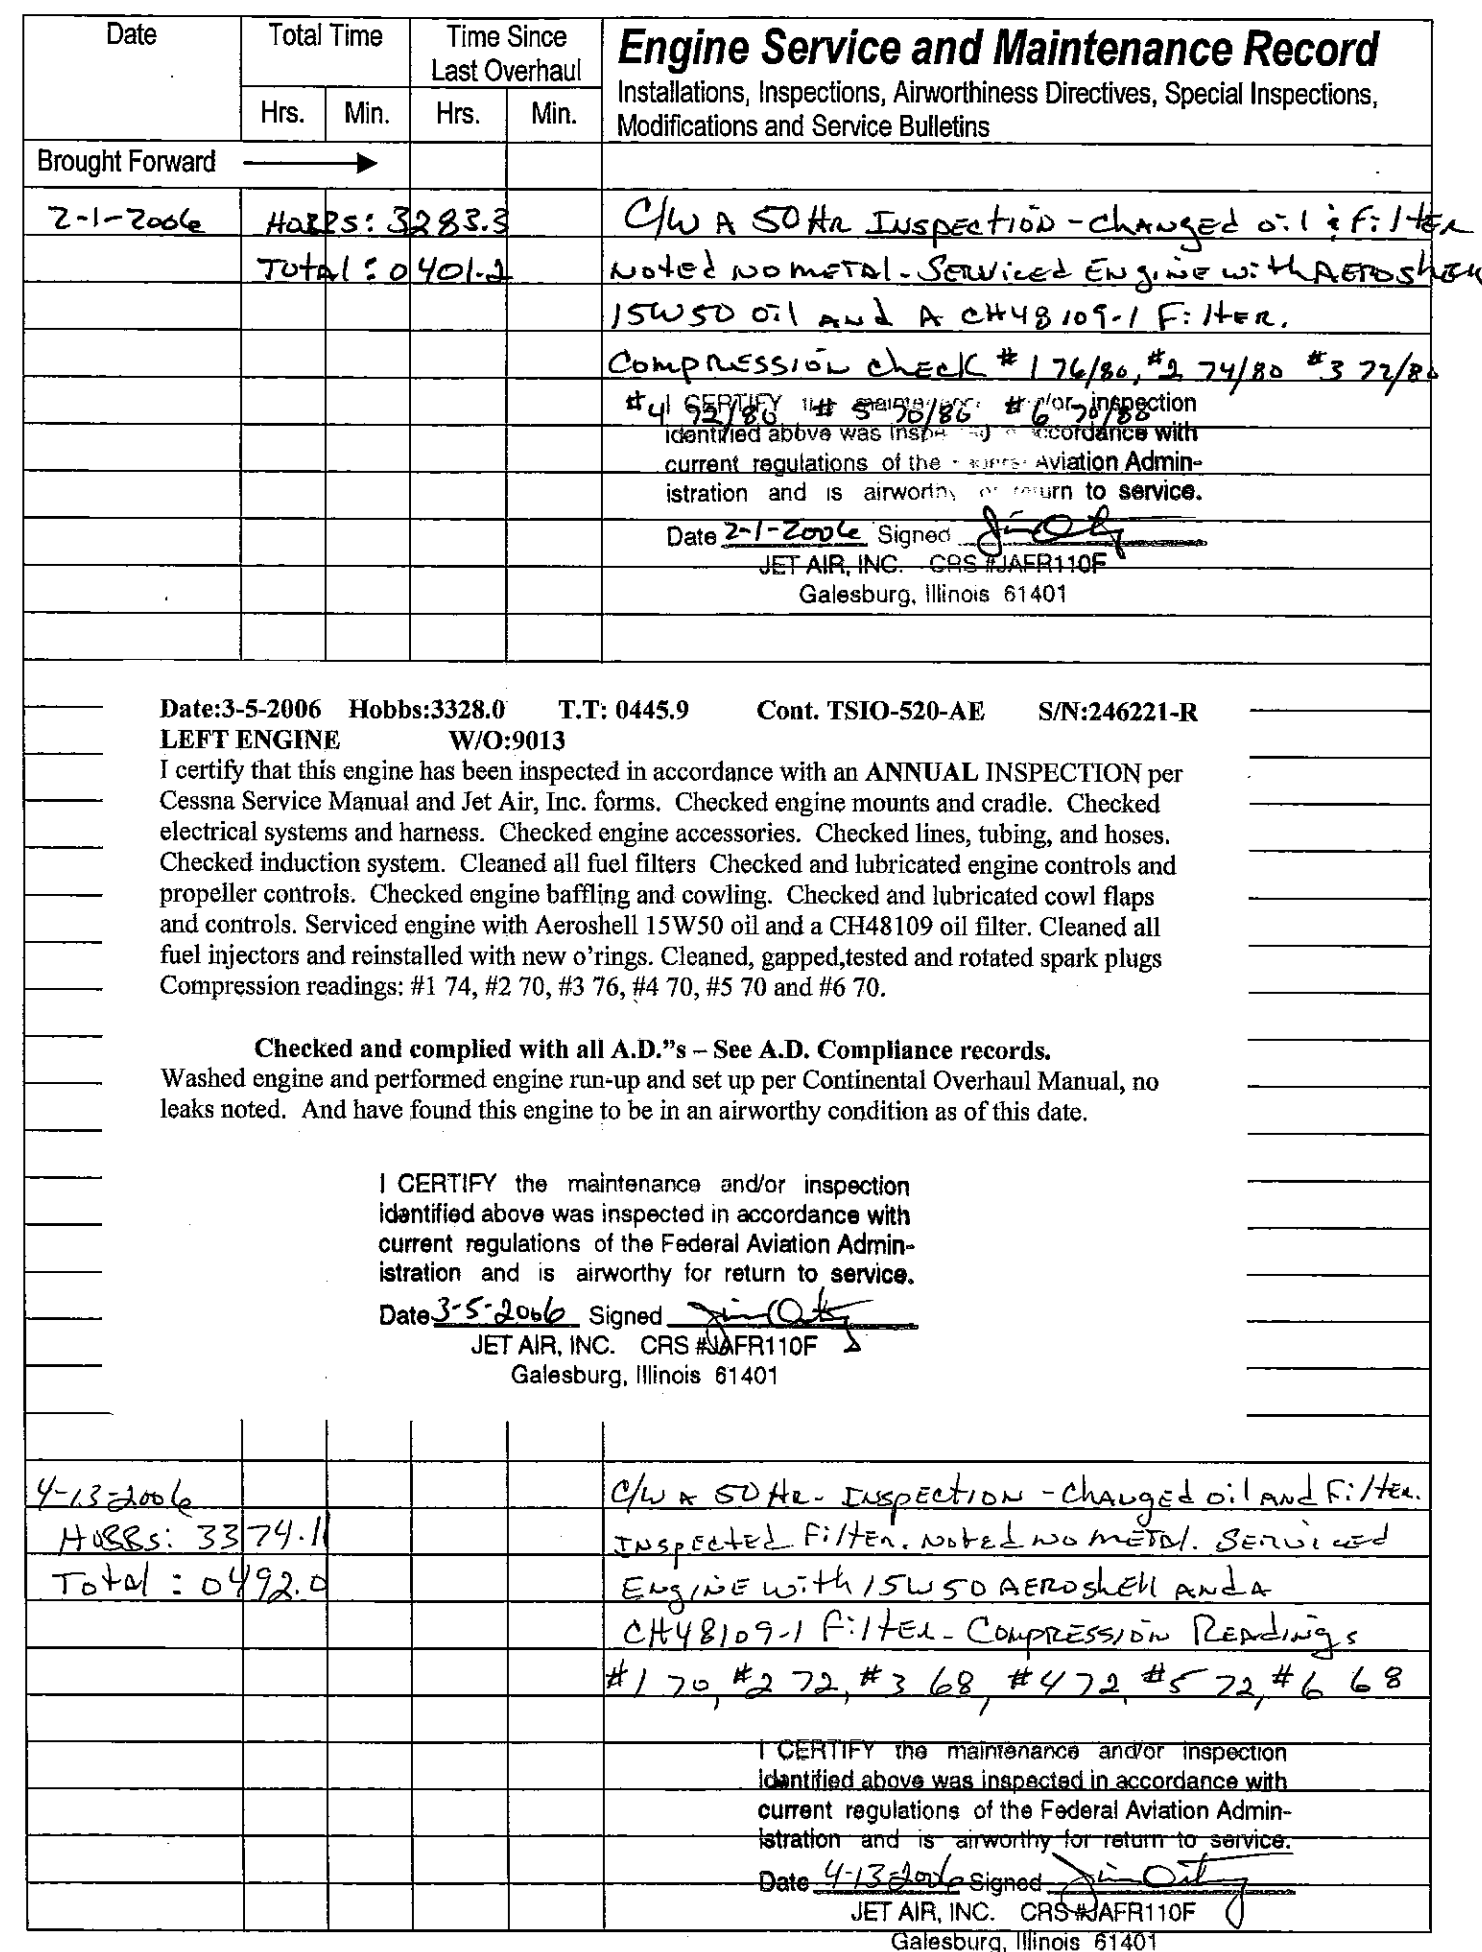 Date Total Time Time Since Last Overhaul Engine Service and Maintenance Record
Installations, Inspections, Airworthiness Directives, Special Inspections,
Hrs. Min. Hrs. Min. Modifications and Service Bulletins
Brought Forward
2-1-2006 HOBBS: 3283.3 C/W A 50 HR INSPECTION - CHANGED OIL & FILTER
TOTAL: 0401.2 NOTED NO METAL. SERVICED ENGINE WITH AEROSHELL
15W50 OIL AND A CH48109-1 FILTER.
COMPRESSION CHECK #1 76/80, #2 74/80 #3 72/80
#4 72/80 #5 70/80 #6 70/88
I CERTIFY the maintenance and/or inspection
identified above was inspected in accordance with
current regulations of the Federal Aviation Admin-
istration and is airworthy for return to service.
Date 2-1-2006 Signed
JET AIR, INC. CRS #JAFR110F
Galesburg, Illinois 61401
Date:3-5-2006 Hobbs:3328.0 T.T: 0445.9 Cont. TSIO-520-AE S/N:246221-R
LEFT ENGINE W/O:9013
I certify that this engine has been inspected in accordance with an ANNUAL INSPECTION per
Cessna Service Manual and Jet Air, Inc. forms. Checked engine mounts and cradle. Checked
electrical systems and harness. Checked engine accessories. Checked lines, tubing, and hoses.
Checked induction system. Cleaned all fuel filters Checked and lubricated engine controls and
propeller controls. Checked engine baffling and cowling. Checked and lubricated cowl flaps
and controls. Serviced engine with Aeroshell 15W50 oil and a CH48109 oil filter. Cleaned all
fuel injectors and reinstalled with new o'rings. Cleaned, gapped,tested and rotated spark plugs
Compression readings: #1 74, #2 70, #3 76, #4 70, #5 70 and #6 70.
Checked and complied with all A.D."s – See A.D. Compliance records.
Washed engine and performed engine run-up and set up per Continental Overhaul Manual, no
leaks noted. And have found this engine to be in an airworthy condition as of this date.
I CERTIFY the maintenance and/or inspection
identified above was inspected in accordance with
current regulations of the Federal Aviation Admin-
istration and is airworthy for return to service.
Date 3-5-2006 Signed
JET AIR, INC. CRS #JAFR110F
Galesburg, Illinois 61401
4-13-2006 C/W A 50 HR. INSPECTION - CHANGED OIL AND FILTER.
HOBBS: 3374.1 INSPECTED FILTER. NOTED NO METAL. SERVICED
TOTAL: 0492.0 ENGINE WITH 15W50 AEROSHELL AND A
CH48109-1 FILTER - COMPRESSION READINGS
#1 70, #2 72, #3 68, #4 72, #5 72, #6 68
I CERTIFY the maintenance and/or inspection
identified above was inspected in accordance with
current regulations of the Federal Aviation Admin-
istration and is airworthy for return to service.
Date 4-13-2006 Signed
JET AIR, INC. CRS #JAFR110F
Galesburg, Illinois 61401